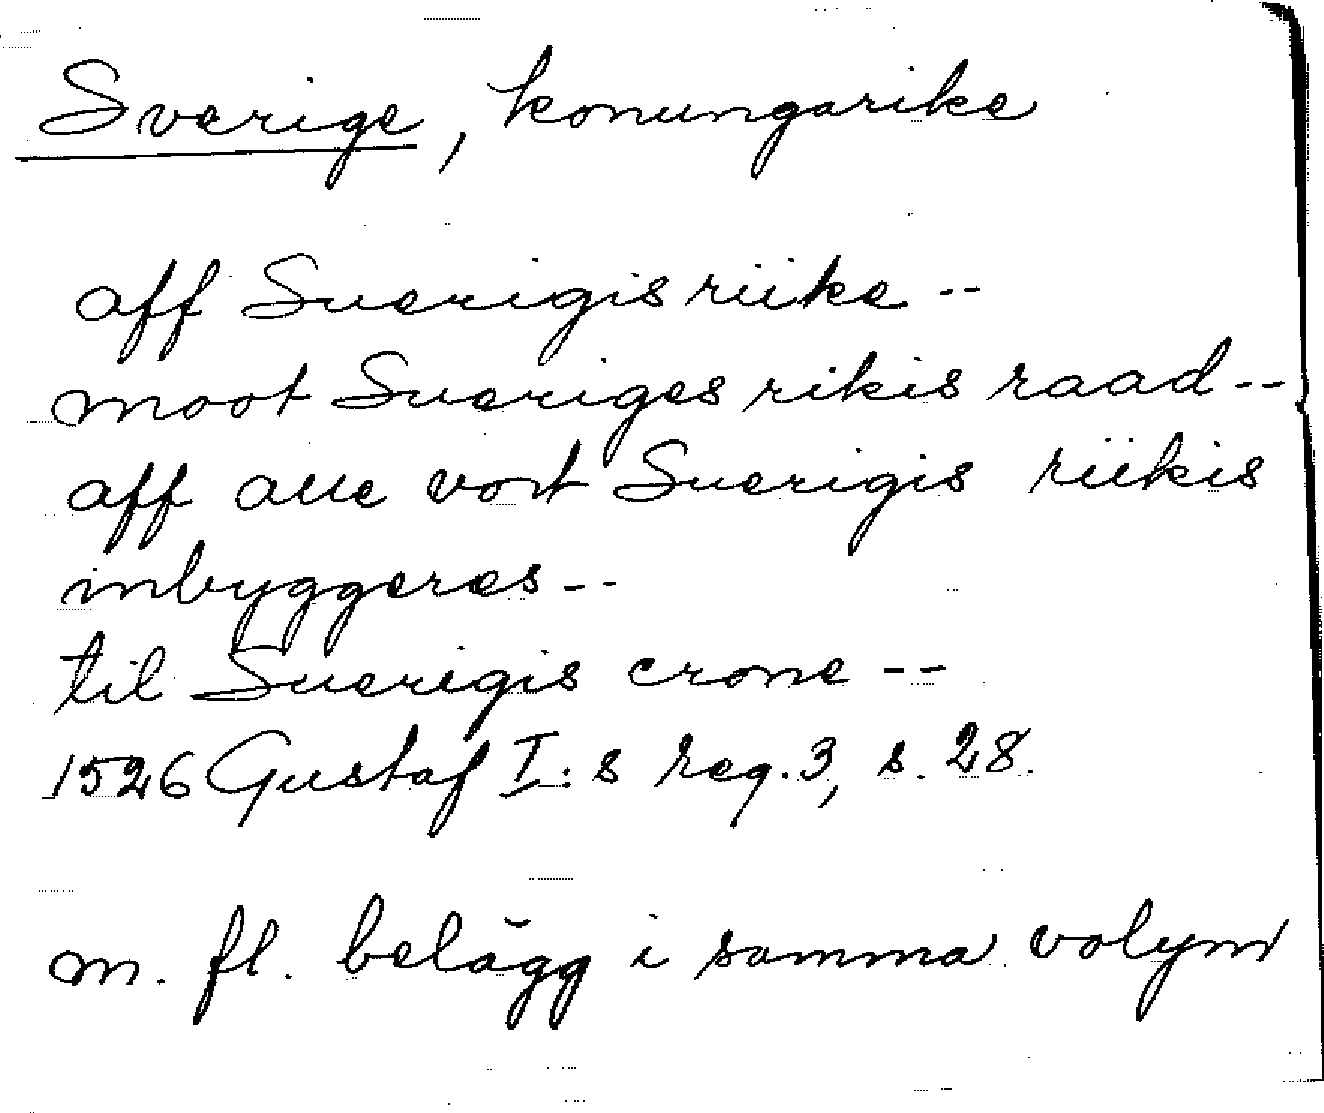 Sverige, konungarike
aff Suerigis riike --
moot Sueriges rikis raad --
aff alle vort Suerigis riikis
inbyggeres --
til Suerigis crone --
1526 Gustaf I:s reg. 3, s. 28.
m. fl. belägg i samma volym